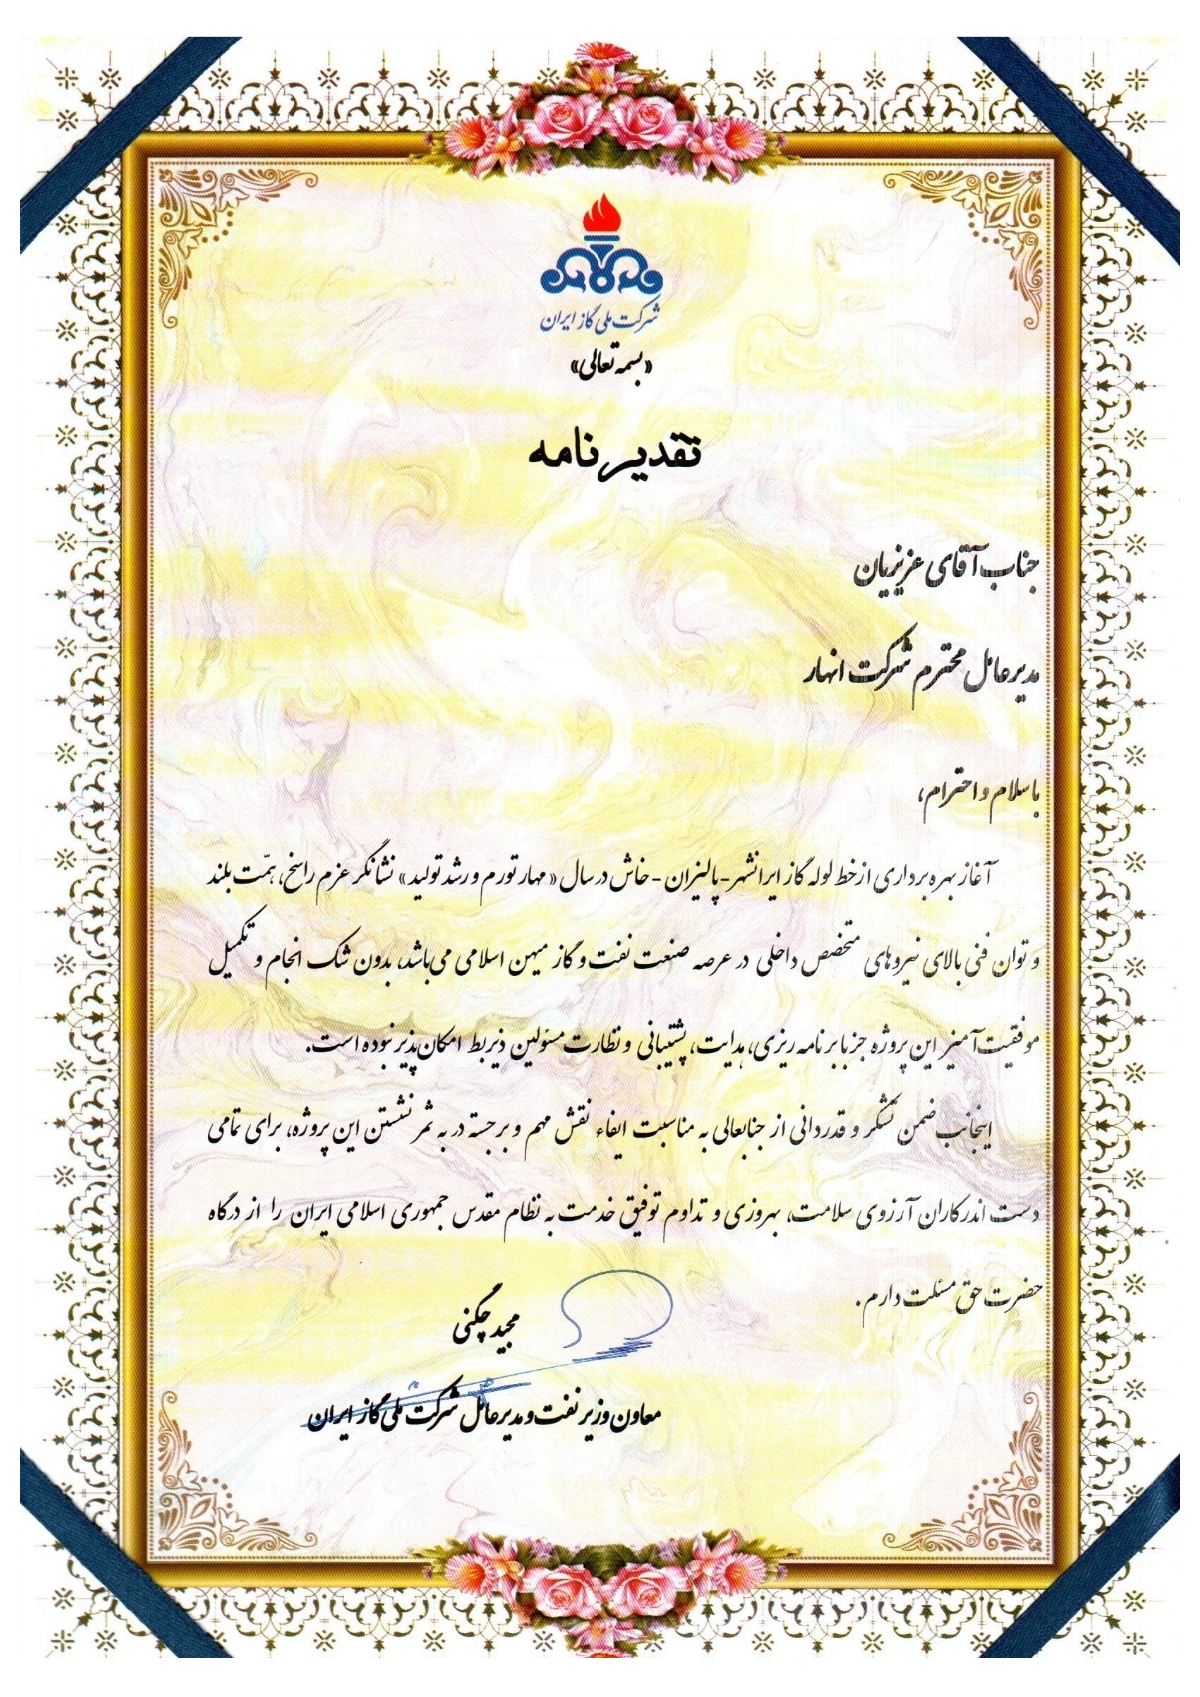 شرکت ملی گاز ایران
«بسمه تعالی»
تقدیر نامه
جناب آقای عزیزیان
مدیرعامل محترم شرکت انهار
باسلام و احترام،
آغاز بهره برداری از خط لوله گاز ایرانشهر- پالیزان - خاش در سال «مهار تورم و رشد تولید» نشانگر عزم راسخ، همّت بلند
و توان فنی بالای نیروهای متخصص داخلی در عرصه صنعت نفت و گاز میهن اسلامی می‌باشد، بدون شک انجام و تکمیل
موفقیت آمیز این پروژه جز با برنامه ریزی، هدایت، پشتیبانی و نظارت مسئولین ذیربط امکان پذیر نبوده است.
اینجانب ضمن تشکر و قدردانی از جنابعالی به مناسبت ایفاء نقش مهم و برجسته در به ثمر نشستن این پروژه، برای تمامی
دست اندرکاران آرزوی سلامت، بهروزی و تداوم توفیق خدمت به نظام مقدس جمهوری اسلامی ایران را از درگاه
حضرت حق مسئلت دارم.
مجید چگنی
معاون وزیر نفت و مدیرعامل شرکت ملی گاز ایران